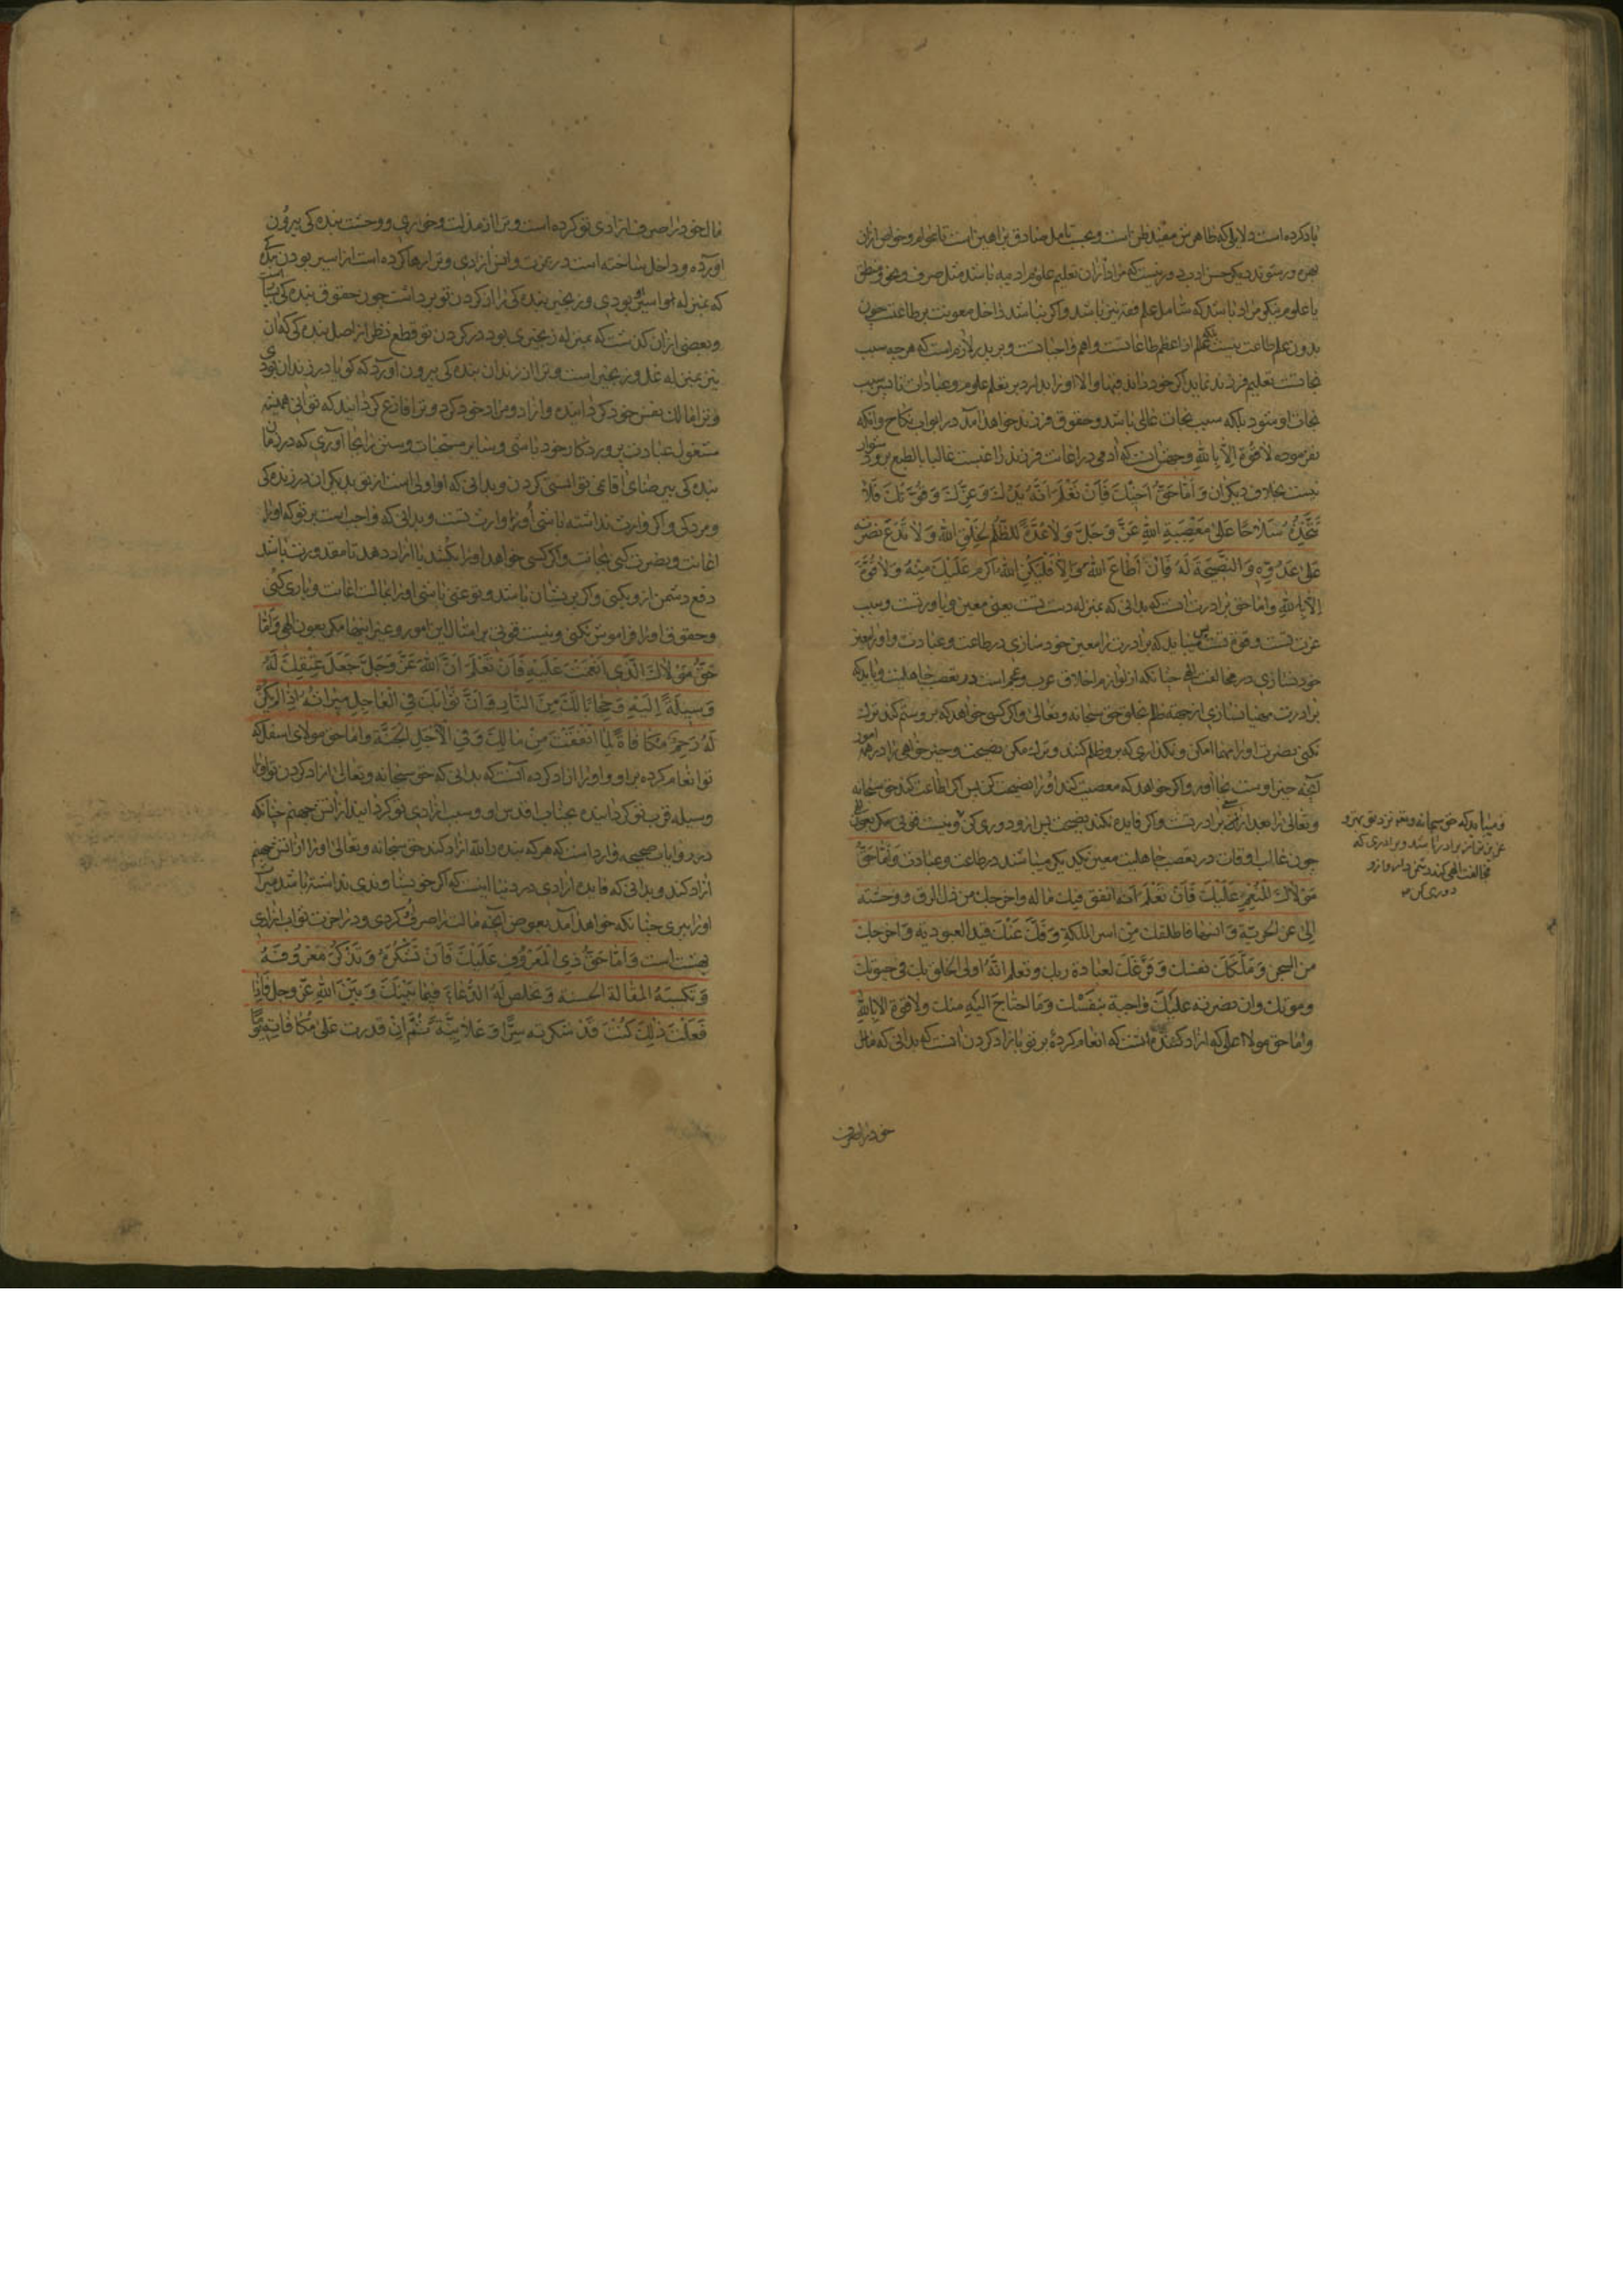 یاد کرده است دلایلی که ظاهرش مفید ظن است و بحسب تامل صادق براهین است تا عوام و خواص از ان
بهره ور شوند دیگر حسن ادب و دور نیست که مراد از ان تعلیم علوم ادبیه باشد مثل صرف و نحو و منطق
یا علوم نیکو مراد باشد که شامل علم فقه نیز باشد و اگر نباشد داخل معونت بر طاعت چون
بدون علم طاعت نیست بلکه علم از اعظم طاعاتست و اهم واجباتست و بر پدر لازم است که هر چه سبب
نجاتست تعلیم فرزند نماید اگر خود داند فبها و الا او را بدارد بر تعلم علوم و عبادات تا پس سبب
نجات او شود بلکه سبب نجات عالی باشد و حقوق فرزند خواهد آمد در ابواب نکاح و انکه
نفرموده لا قوة الا بالله وجهش انست که آدمی در اعانت فرزند راغبست غالبا بالطبع برو دشوار
نیست بخلاف دیگران وَ اَمّا حَقُّ اَخیكَ فَاَنْ تَعْلَمَ اَنَّهُ یَدُكَ وَ عِزُّكَ وَ قُوَّتُكَ فَلا
تَتَّخِذْهُ سِلاحًا عَلی مَعْصِیَةِ اللهِ عَزَّ وَ جَلَّ وَ لا عُدَّةً لِلظُّلْمِ لِخَلْقِ اللهِ وَ لا تَدَعْ نُصْرَتَهُ
عَلی عَدُوِّهِ وَ النَّصیحَةَ لَهُ فَاِنْ اَطاعَ اللهَ وَ اِلّا فَلْیَكُنِ اللهُ اَكْرَمَ عَلَیْكَ مِنْهُ وَ لا قُوَّةَ
اِلّا بِاللهِ و اما حق برادرت انست که بدانی که بمنزله دست تست یعنی معین و یاور تست و سبب
عزت تست و قوة تست پس میباید که برادرت را معین خود سازی در طاعت و عبادت و او را معین
خود نسازی در مخالفت الهی چنانکه از لوازم اخلاق عرب و عجم است در تعصب جاهلیت و باید که
برادرت مهیا نسازی از جهة ظلم بخلق حق سبحانه و تعالی و اگر کسی خواهد که برو ستم کند ترک
نکنی نصرت او را مهما امکن و نگذاری که برو ظلم کنند و ترک مکن نصیحت و خیر خواهی را در همه امور
آنچه خیر اوست بجا آور و اگر خواهد که معصیت کند او را نصیحت کن پس اگر اطاعت کند حق سبحانه
و تعالی را بعد از نصیحت برادر تست و اگر فایده نکند نصیحت پس ازو دوری کن و نیست قوتی مگر بعون الهی
چون غالب اوقات در تعصب جاهلیت معین یکدیگر میباشند در طاعت و عبادت وَ اَمّا حَقُّ
مَوْلاكَ الْمُنْعِمِ عَلَیْكَ فَاَنْ تَعْلَمَ اَنَّهُ انفق فیك ماله و اخرجك من ذل الرق و وحشته
الی عز الحریّة وَ انسها فاطلقك مِن اسر الملکةِ وَ فَكَّ عَنْكَ قید العبودیة وَ اخرجك
من السجن وَ مَلَّكَكَ نفسك وَ فَرَّغَكَ لعبادة ربك و تعلم انَّهُ اولی الخلق بك فی حیوتك
و موتك و ان نصرته علیكَ واجبة بنَفْسك وَ ما احتاج الیه منك و لا قوة الا بالله
و اما حق مولا اعلی که ازاد کننده است که انعام کرده بر تو بازاد کردن انست که بدانی که مال
خود را صرف
و میباید که حق سبحانه و تعالی نزد تو بهتر و
عزیزتر از برادر باشد و برادری که
مخالفت الهی کند دشمن دار و ازو
دوری کن
مال خود را صرف ازادی تو کرده است و ترا از مذلت و خواری و وحشت بندگی بیرون
آورده و داخل ساخته است در عزت و انس ازادی و ترا رها کرده است از اسیر بودن بندگی
که بمنزله او اسیر بودی و زنجیر بندگی را از گردن تو برداشت چون حقوق بندگی بسیار است
و بعضی از ان گذشت که بمنزله زنجیری بود در گردن تو قطع نظر از اصل بندگی که ان
نیز بمنزله غل و زنجیر است و ترا از زندان بندگی بیرون آورد که گویا در زندان بودی
و ترا مالک نفس خود گردانیده و ازاد و مراد خود کرد و ترا فارغ گردانید که توانی همیشه
مشغول عبادت پروردگار خود باشی و سایر مستحبات و سنن را بجا آوری که در زمان
بندگی بی رضای اقا نمی توانستی کردن و بدانی که او اولی است از تو بدیگران در زندگی
و مردگی و اگر وارث نداشته باشی او را وارث تست و بدانی که واجب است بر تو که او را
اعانت و نصرت کنی بجانت و اگر کسی خواهد او را بکشد یا ازار دهد تا مقدورت باشد
دفع دشمن ازو بکنی و اگر پریشان باشد و تو غنی باشی او را بمالت اعانت و یاری کنی
و حقوق او را فراموش نکنی و نیست قوتی بر امثال این امور و غیر اینها مگر بعون الهی وَ اَمّا
حَقُّ مَوْلاكَ الَّذی اَنْعَمْتَ عَلَیْهِ فَاَنْ تَعْلَمَ اَنَّ اللهَ عَزَّ وَ جَلَّ جَعَلَ عِتْقَكَ لَهُ
وَسیلَةً اِلَیْهِ وَ حِجابًا لَكَ مِنَ النّارِ وَ اَنَّ ثَوابَكَ فِی الْعاجِلِ میراثُهُ اِذا لَمْ یَكُنْ
لَهُ رَحِمٌ مُكافاةً لِما اَنْفَقْتَ مِنْ مالِكَ وَ فِی الْآجِلِ الْجَنَّةُ و اما حق مولای اسفل که
تو انعام کرده بر او و او را ازاد کرده آنست که بدانی که حق سبحانه و تعالی ازاد کردن تو او را
وسیله قرب تو گردانیده بجناب اقدس او و سبب ازادی تو گردانید از اتش جهنم چنانکه
در روایات صحیحه وارد است که هر که بنده را لله ازاد کند حق سبحانه و تعالی او را از اتش جهنم
ازاد کند و بدانی که فایده ازادی در دنیا اینست که اگر خویشاوندی نداشته باشد میراث
او را ببری چنانکه خواهد آمد بعوض آنچه مالت را صرف کردی و در اخرت ثواب ازادی
بهشت است وَ اَمّا حَقُّ ذِی الْمَعْرُوفِ عَلَیْكَ فَاَنْ تَشْكُرَهُ وَ تَذْكُرَ مَعْرُوفَهُ
وَ تَكْسِبَهُ المَقالَةَ الحسنة وَ تخلص لَهُ الدُّعاءَ فیما بَیْنَكَ وَ بَیْنَ اللهِ عزّ و جل فَاِذا
فَعَلْتَ ذلِكَ كُنْتَ قَدْ شكرته سِرًّا وَ عَلانِیَةً ثُمَّ اِنْ قدرت عَلی مُكافاتِهِ یَوْمًا